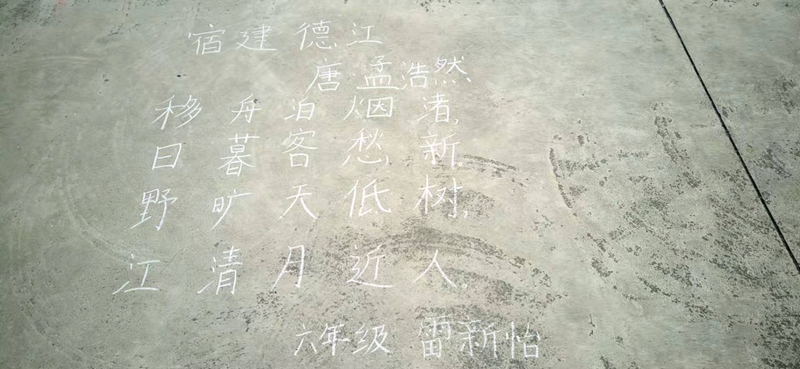 宿建德江
唐 孟浩然
移舟泊烟渚,
日暮客愁新.
野旷天低树,
江清月近人.
六年级 雷新怡